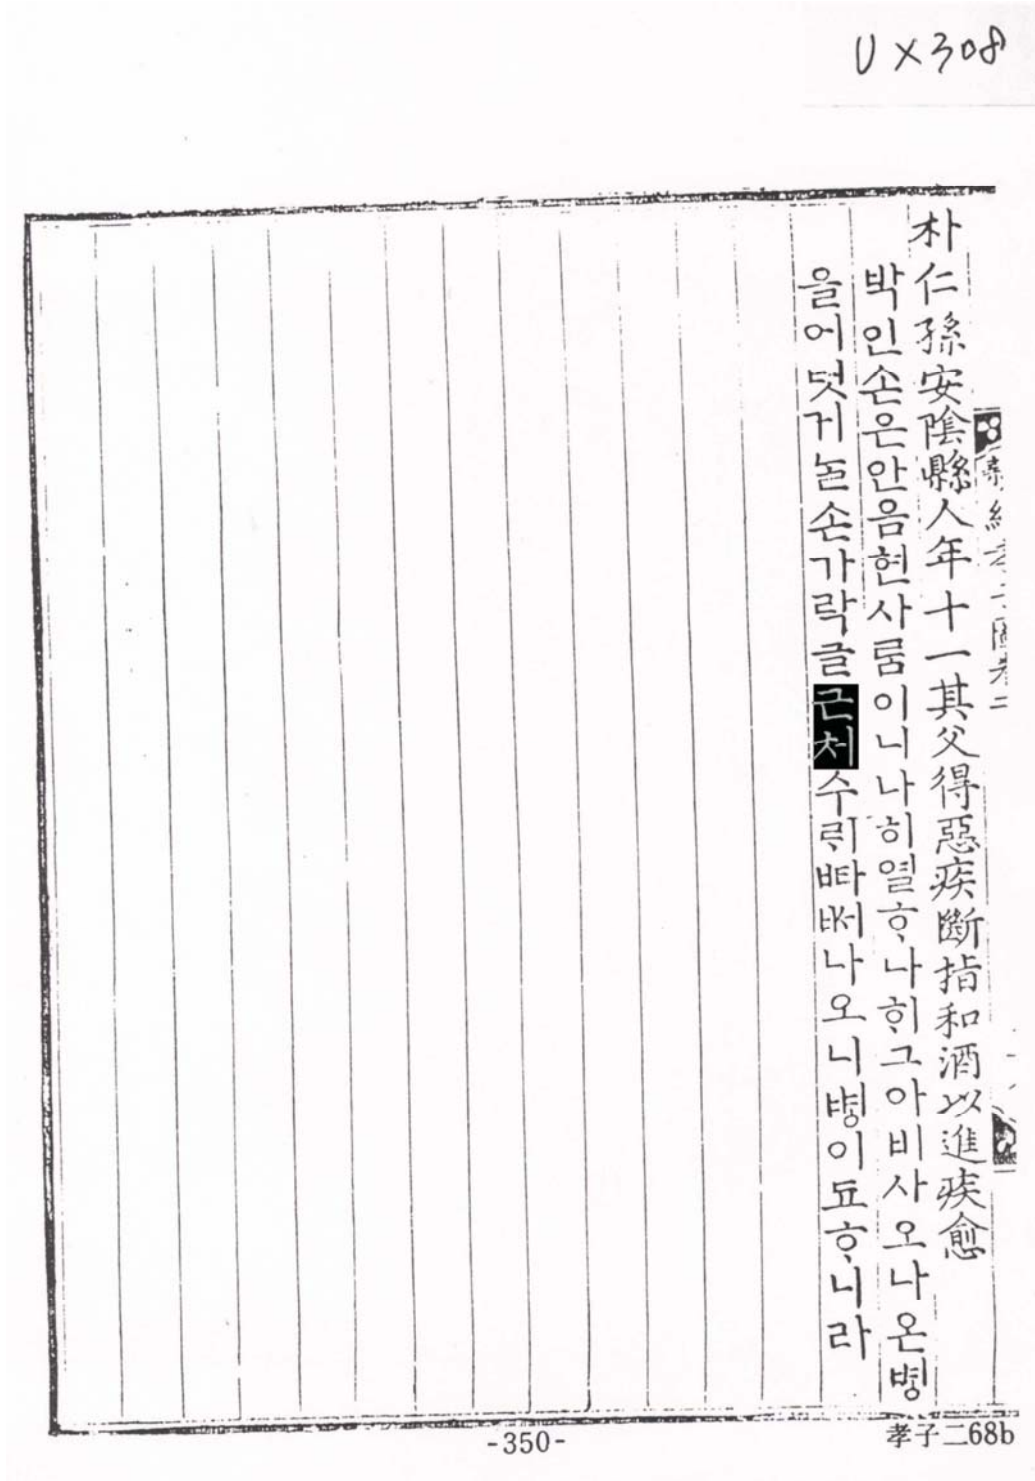 U×308
朴仁孫安陰縣人年十一其父得惡疾斷指和酒以進疾愈
박인손은안음현사룸이니나히열ᄒᆞ나ᄒᆡ그아비사오나온병
을어덧거놀손가락글근처수ᄅᆡᄩᅡᄡᅥ나오니병이됴ᄒᆞ니라
-350-
孝子二68b